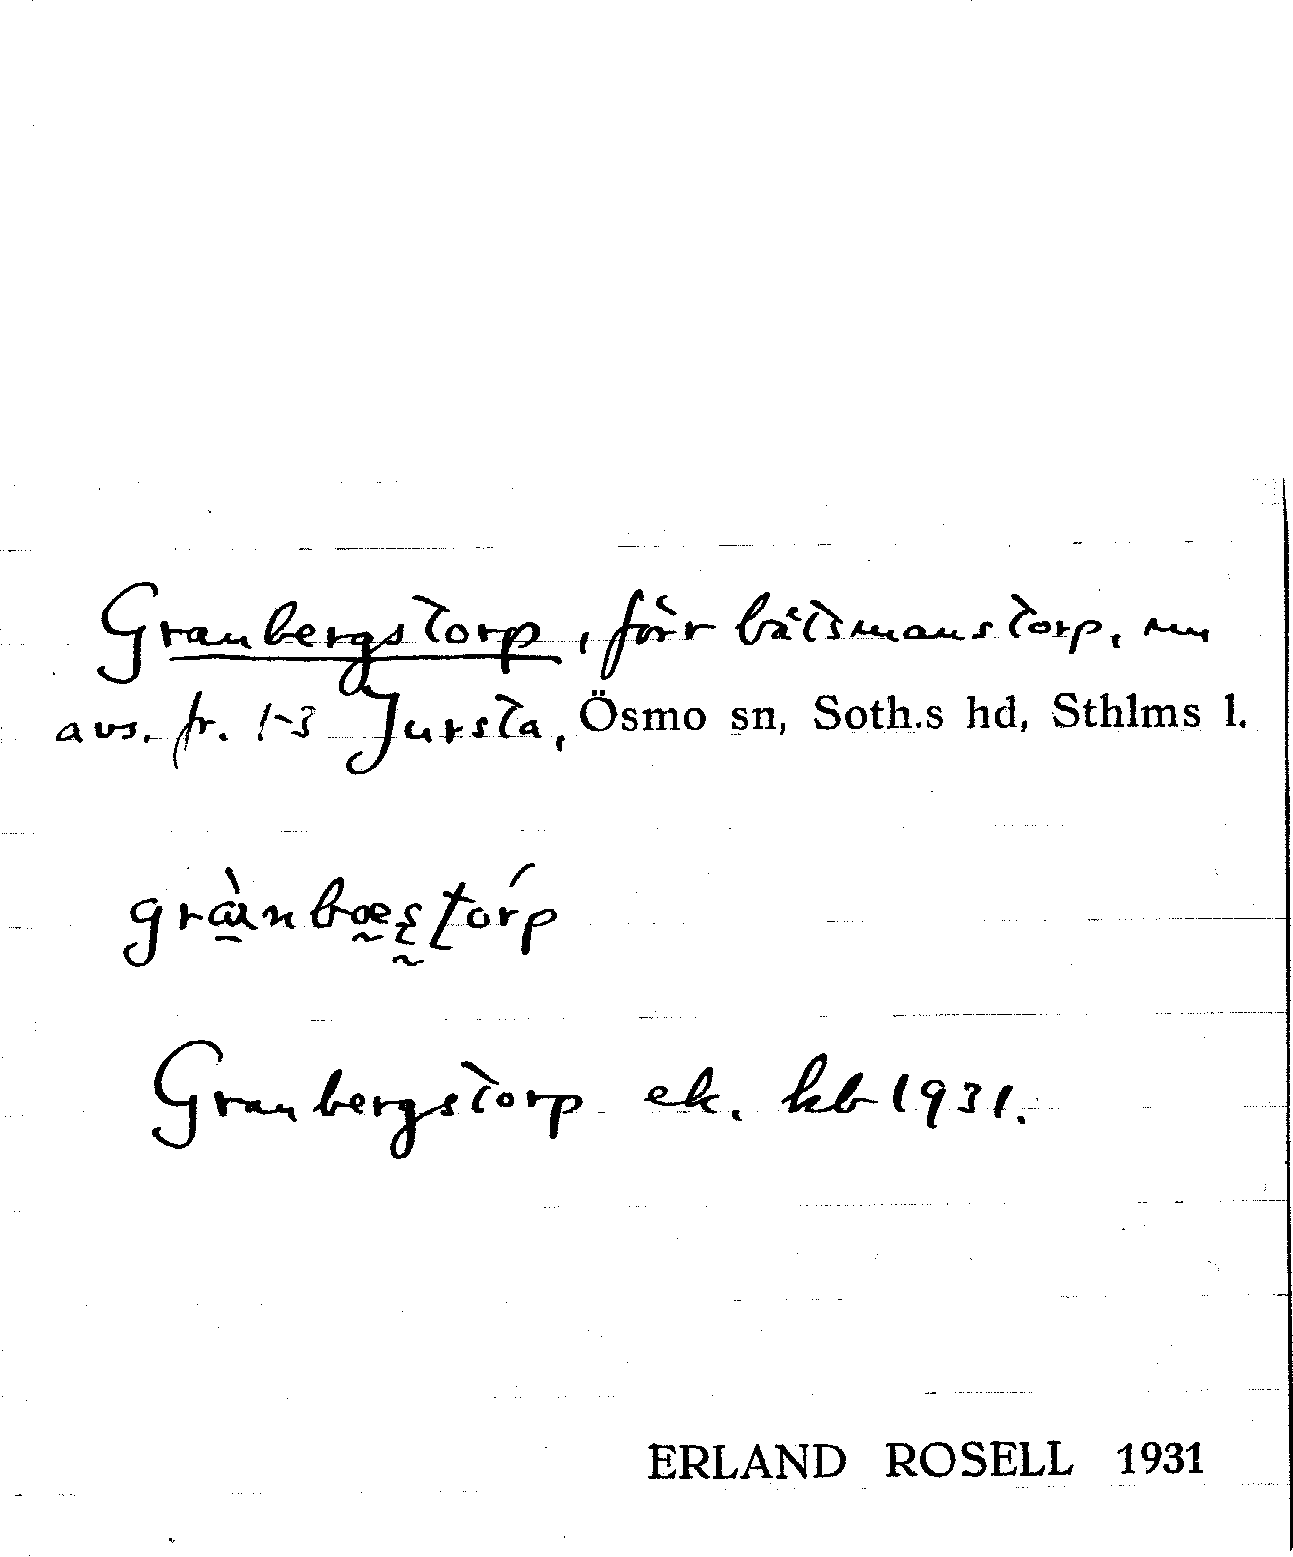 Granbergstorp, förr båtsmanstorp, nu
avs. fr. 1-3 Jursta, Ösmo sn, Soth.s hd, Sthlms l.
Granbergstorp ek. kb 1931.
ERLAND ROSELL 1931